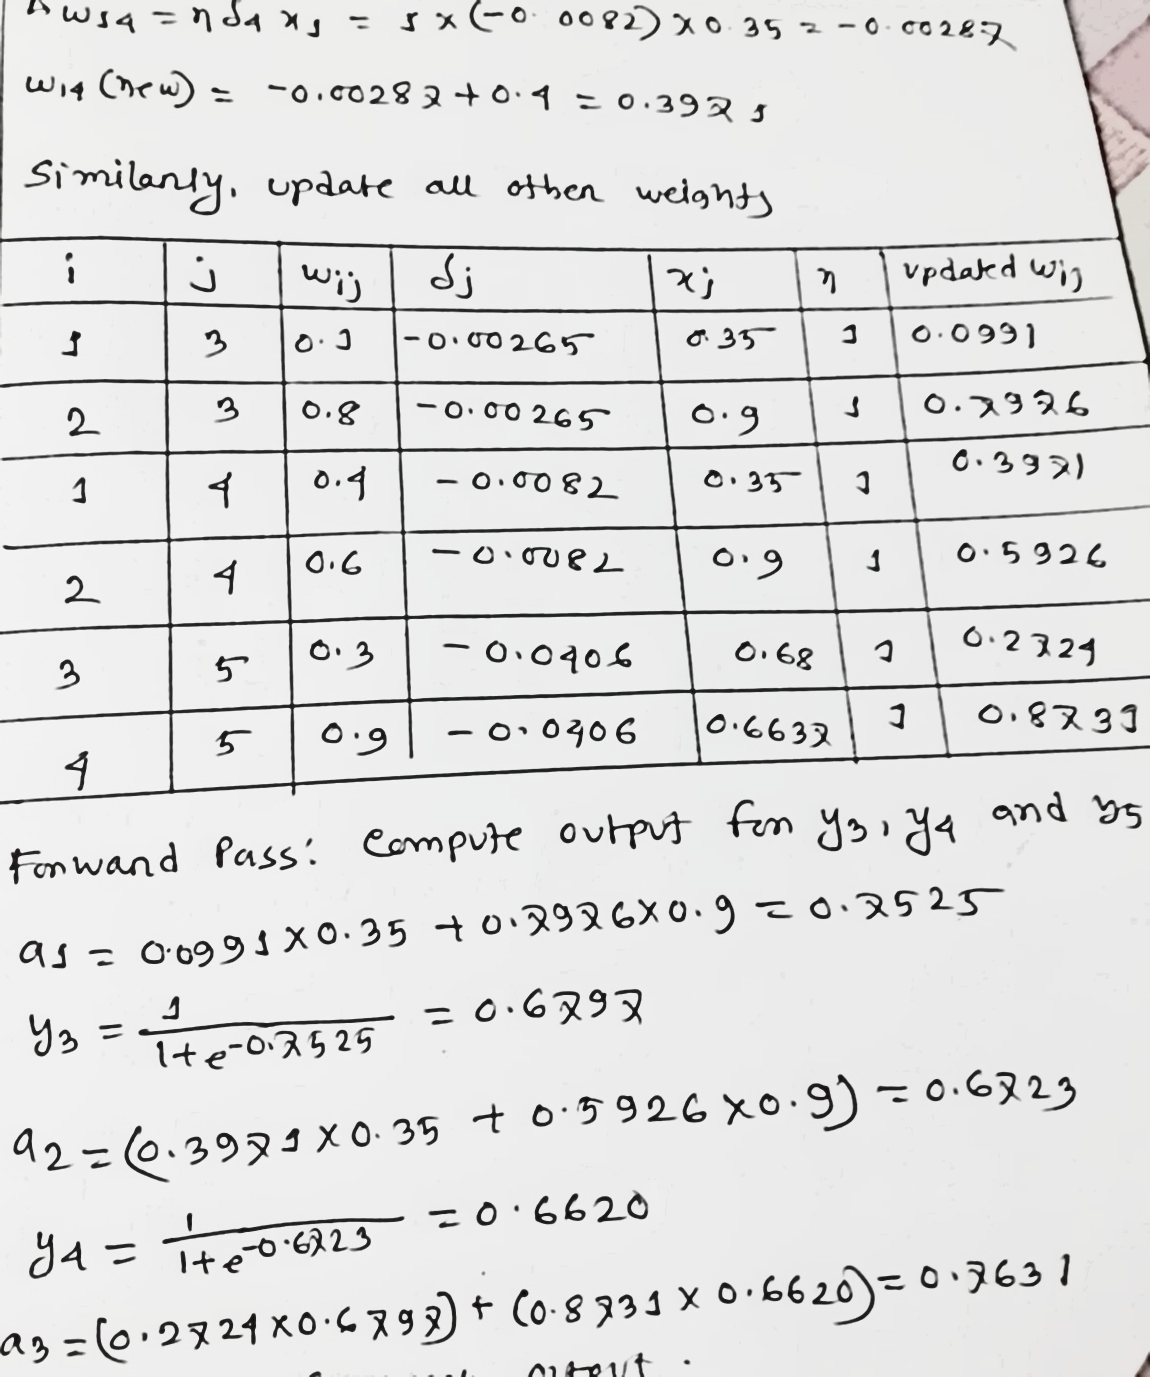 Δw14 = ηδ4 x1 = 1 x (-0.0082) x 0.35 = -0.00287
w14 (new) = -0.00287 + 0.4 = 0.3971
Similarly, update all other weights
i j wij δj xj η updated wij
1 3 0.1 -0.00265 0.35 1 0.0991
2 3 0.8 -0.00265 0.9 1 0.7976
1 4 0.4 -0.0082 0.35 1 0.3971
2 4 0.6 -0.0082 0.9 1 0.5926
3 5 0.3 -0.0406 0.68 1 0.2724
4 5 0.9 -0.0406 0.6637 1 0.8731
Forward Pass: Compute output for y3, y4 and y5
a1 = 0.0991 x 0.35 + 0.7976 x 0.9 = 0.7525
y3 = 1 / 1+e-0.7525 = 0.6797
a2 = (0.3971 x 0.35 + 0.5926 x 0.9) = 0.6723
y4 = 1 / 1+e-0.6723 = 0.6620
a3 = (0.2724 x 0.6797) + (0.8731 x 0.6620) = 0.7631
output.